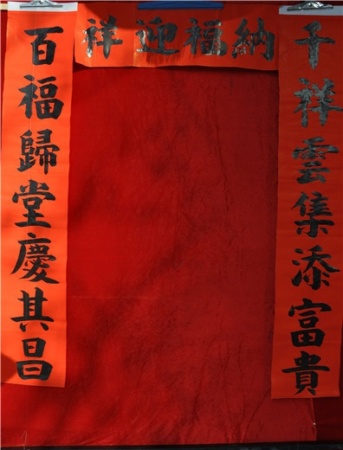 納福迎祥
千祥雲集添富貴
百福歸堂慶其昌